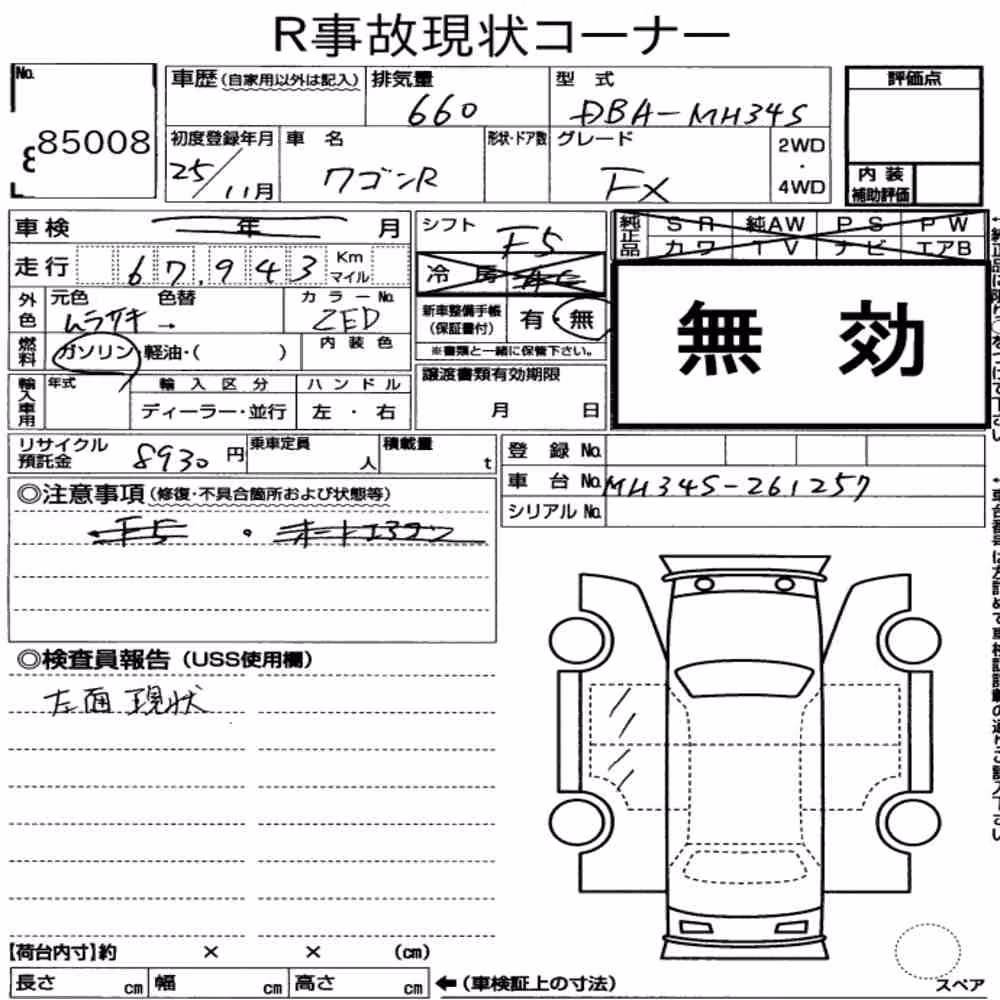 R事故現状コーナー
No.
85008
車歴(自家用以外は記入)
排気量
660
型式
DBA-MH34S
評価点
初度登録年月
25/11月
車名
ワゴンR
形状・ドア数
グレード
FX
2WD
・
4WD
内装
補助評価
車検 年 月
シフト
F5
純正品
SR 純AW PS PW
カワ TV ナビ エアB
走行 67,943 Km マイル
冷房
外色
元色 色替
ムラサキ→
カラーNo.
ZED
新車整備手帳
(保証書付)
有・無
無効
燃料
ガソリン・軽油・( )
内装色
※書類と一緒に保管下さい。
輸入車用
年式
輸入区分
ハンドル
ディーラー・並行
左・右
譲渡書類有効期限
月 日
リサイクル
預託金
8930円
乗車定員
人
積載量
t
登録No.
車台No. MH34S-261257
シリアルNo.
◎注意事項(修復・不具合箇所および状態等)
◎検査員報告(USS使用欄)
左面現状
【荷台内寸】約 × × (cm)
長さ cm 幅 cm 高さ cm ←(車検証上の寸法)
スペア